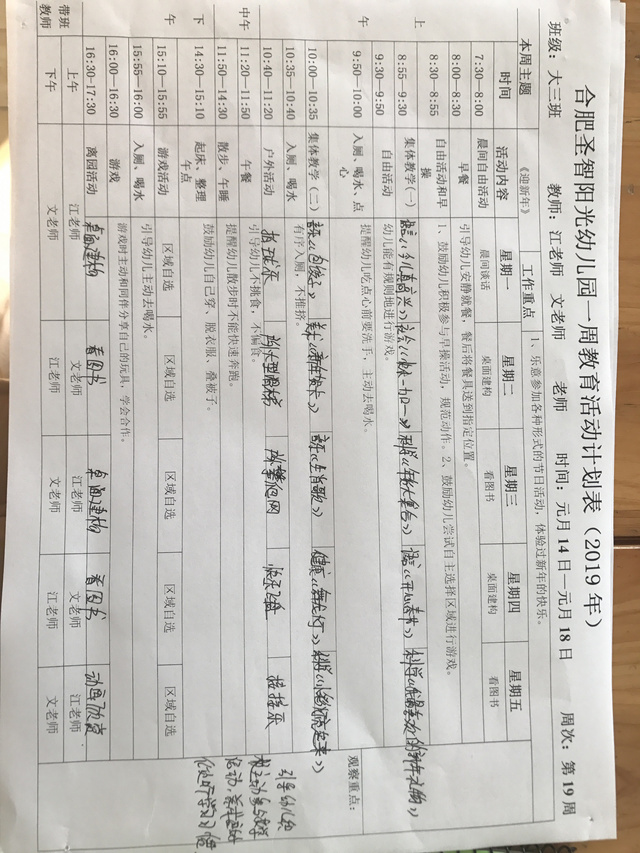 合肥圣智阳光幼儿园一周教育活动计划表（2019 年）
班级：大三班 教师：江老师 文老师 老师 时间：元月14日—元月18日 周次：第19周
本周主题 《迎新年》 工作重点 1、乐意参加各种形式的节日活动，体验过新年的快乐。
时间 活动内容 星期一 星期二 星期三 星期四 星期五
上午
7:30—8:00 晨间自由活动 晨间谈话 桌面建构 看图书 桌面建构 看图书
8:00—8:30 早餐 引导幼儿安静就餐，餐后将餐具送到指定位置。
8:30—8:55 自由活动和早操 1、鼓励幼儿积极参与早操活动，规范动作。2、鼓励幼儿尝试自主选择区域进行游戏。
8:55—9:30 集体教学（一）
9:30—9:50 自由活动 幼儿能有规则地进行游戏。
9:50—10:00 入厕、喝水、点心 提醒幼儿吃点心前要洗手，主动去喝水。
10:00—10:35 集体教学（二） 语言《包饺子》
10:35—10:40 入厕、喝水 有序入厕，不推挤。
10:40—11:20 户外活动
中午
11:20—11:50 午餐 引导幼儿不挑食，不偏食。
11:50—14:30 散步、午睡 提醒幼儿散步时不能快速奔跑。
14:30—15:10 起床、整理午点 鼓励幼儿自己穿、脱衣服、叠被子。
下午
15:10—15:55 游戏活动 区域自选 区域自选 区域自选 区域自选 区域自选
15:55—16:00 入厕、喝水 引导幼儿主动去喝水。
16:00—16:30 游戏 游戏时主动和同伴分享自己的玩具，学会合作。
16:30-17:30 离园活动 桌面建构 看图书 桌面建构 看图书
带班教师 上午 江老师 文老师 江老师 文老师 江老师
下午 文老师 江老师 文老师 江老师 文老师
观察重点：
引导幼儿